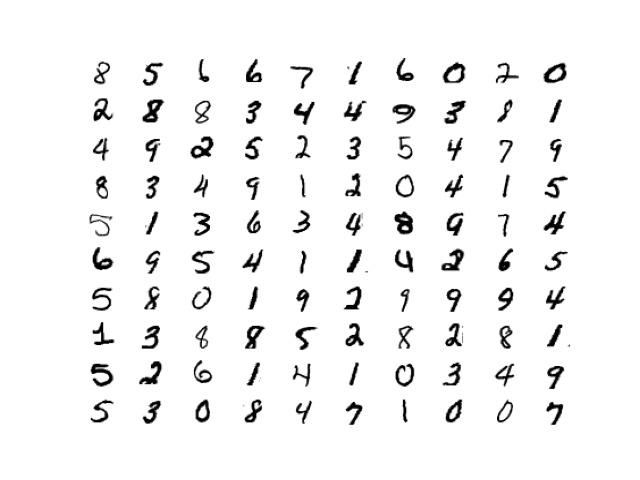 8 5 6 6 7 1 6 0 2 0
2 8 8 3 4 4 9 3 8 1
4 9 2 5 2 3 5 4 7 9
8 3 4 9 1 2 0 4 1 5
5 1 3 6 3 4 8 9 7 4
6 9 5 4 1 1 4 2 6 5
5 8 0 1 9 2 9 9 9 4
1 3 8 8 5 2 8 2 8 1
5 2 6 1 4 1 0 3 4 9
5 3 0 8 4 7 1 0 0 7